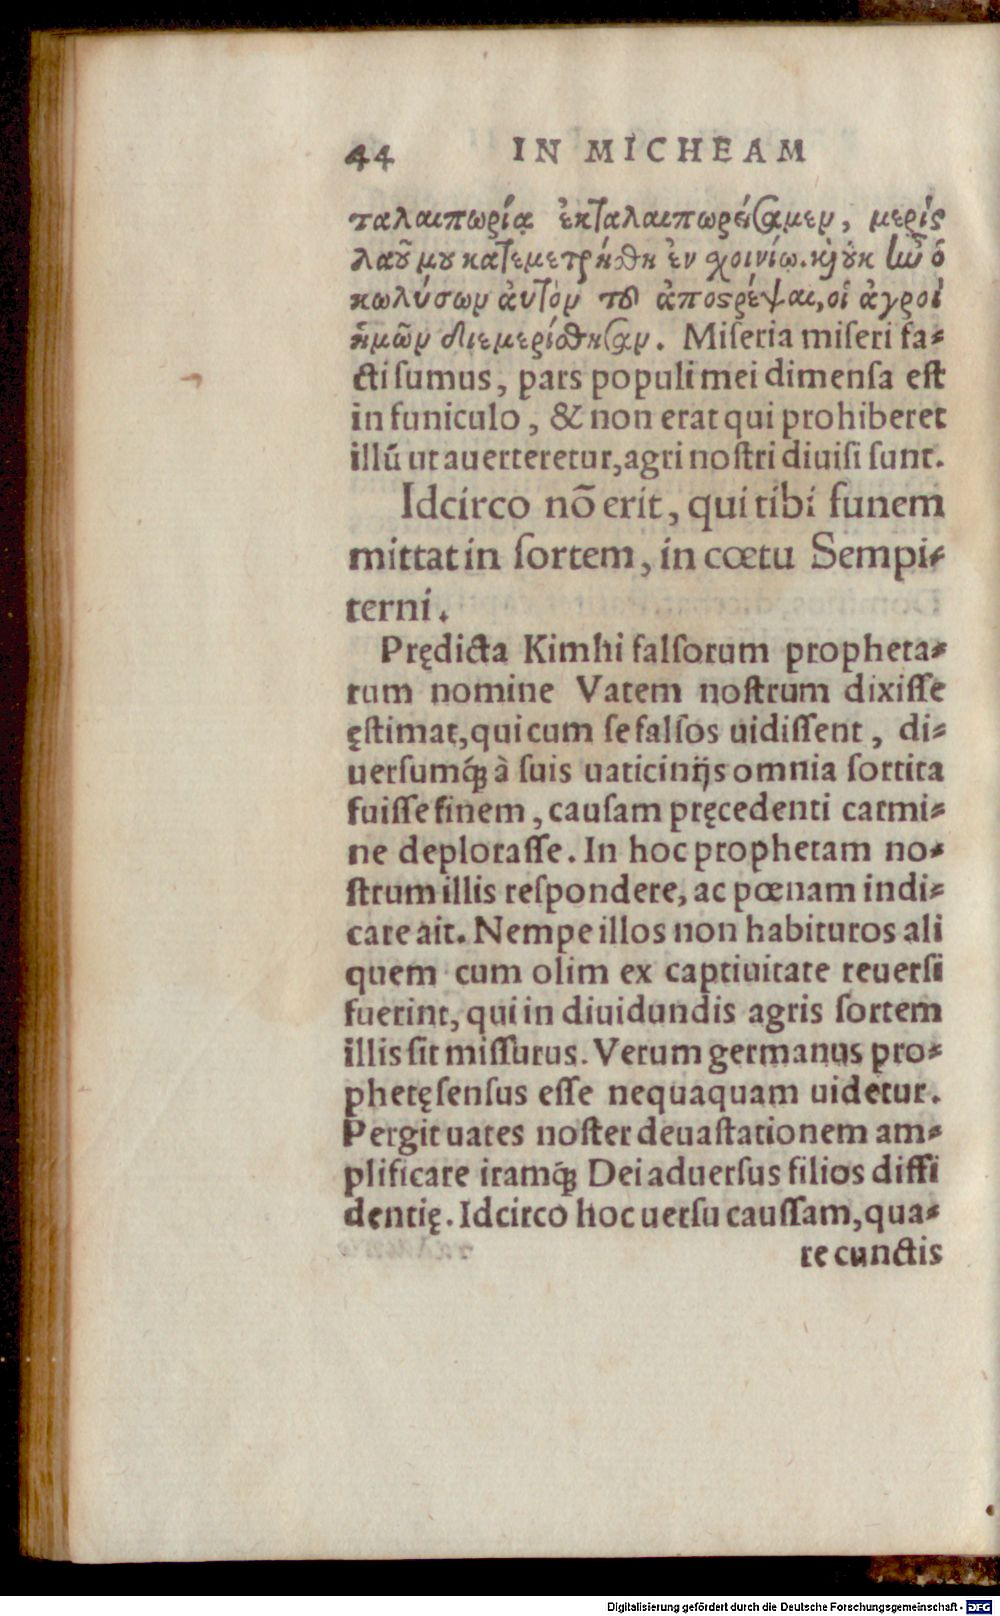 44 IN MICHEAM
ταλαιπωρίᾳ ἐκταλαιπωρέσαμεν, μερίς
λαοῦ μου κατεμετρήθη ἐν χοινίῳ. κ̀ οὐκ ἰῶ ὁ
κωλύσων ἀυτὸν τοῦ ἀποςρέψαι, οἱ ἀγροὶ
ἡμῶν διεμερίσθησαν. Miſeria miſeri fa⸗
cti ſumus, pars populi mei dimenſa eſt
in funiculo, & non erat qui prohiberet
illũ ut auerteretur, agri noſtri diuiſi ſunt.
Idcirco nõ erit, qui tibi funem
mittat in ſortem, in cœtu Sempi⸗
terni.
Prędicta Kimhi falſorum propheta⸗
rum nomine Vatem noſtrum dixiſſe
ęſtimat, qui cum ſe falſos uidiſſent, di⸗
uerſumq́ꝫ à ſuis uaticinijs omnia ſortita
fuiſſe finem, cauſam pręcedenti carmi⸗
ne deploraſſe. In hoc prophetam no⸗
ſtrum illis reſpondere, ac pœnam indi⸗
care ait. Nempe illos non habituros ali
quem cum olim ex captiuitate reuerſi
fuerint, qui in diuidundis agris ſortem
illis ſit miſſurus. Verum germanus pro⸗
phetę ſenſus eſſe nequaquam uidetur.
Pergit uates noſter deuaſtationem am⸗
plificare iramq́ꝫ Dei aduerſus filios diffi
dentię. Idcirco hoc uerſu cauſſam, qua⸗
re cunctis
Digitalisierung gefördert durch die Deutsche Forschungsgemeinschaft - DFG